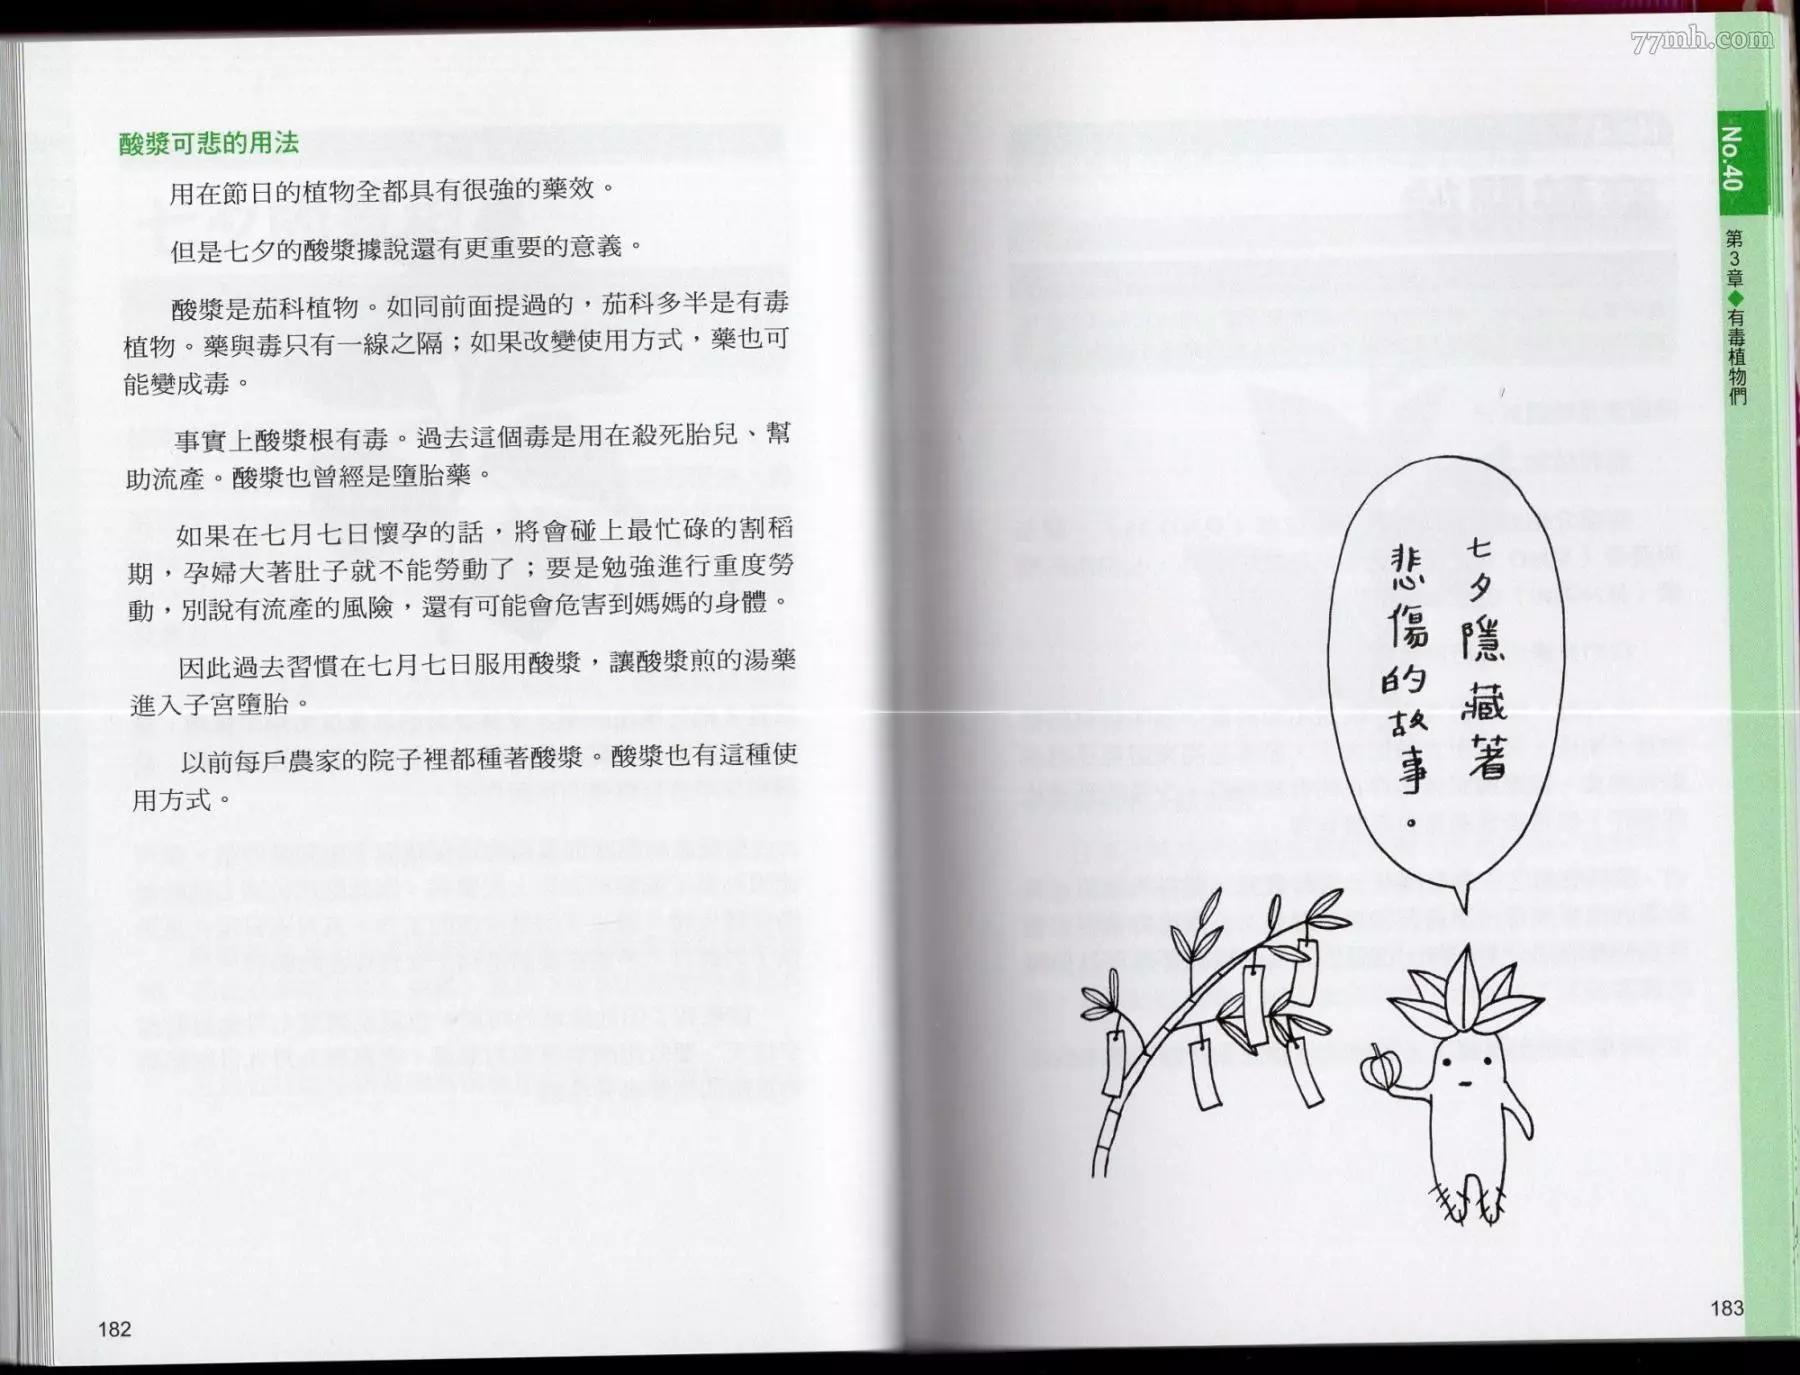 酸漿可悲的用法
用在節日的植物全都具有很強的藥效。
但是七夕的酸漿據說還有更重要的意義。
酸漿是茄科植物。如同前面提過的，茄科多半是有毒
植物。藥與毒只有一線之隔；如果改變使用方式，藥也可
能變成毒。
事實上酸漿根有毒。過去這個毒是用在殺死胎兒、幫
助流產。酸漿也曾經是墮胎藥。
如果在七月七日懷孕的話，將會碰上最忙碌的割稻
期，孕婦大著肚子就不能勞動了；要是勉強進行重度勞
動，別說有流產的風險，還有可能會危害到媽媽的身體。
因此過去習慣在七月七日服用酸漿，讓酸漿煎的湯藥
進入子宮墮胎。
以前每戶農家的院子裡都種著酸漿。酸漿也有這種使
用方式。
182
77mh.com
No.40
第3章◆有毒植物們
七夕隱藏著
悲傷的故事。
183